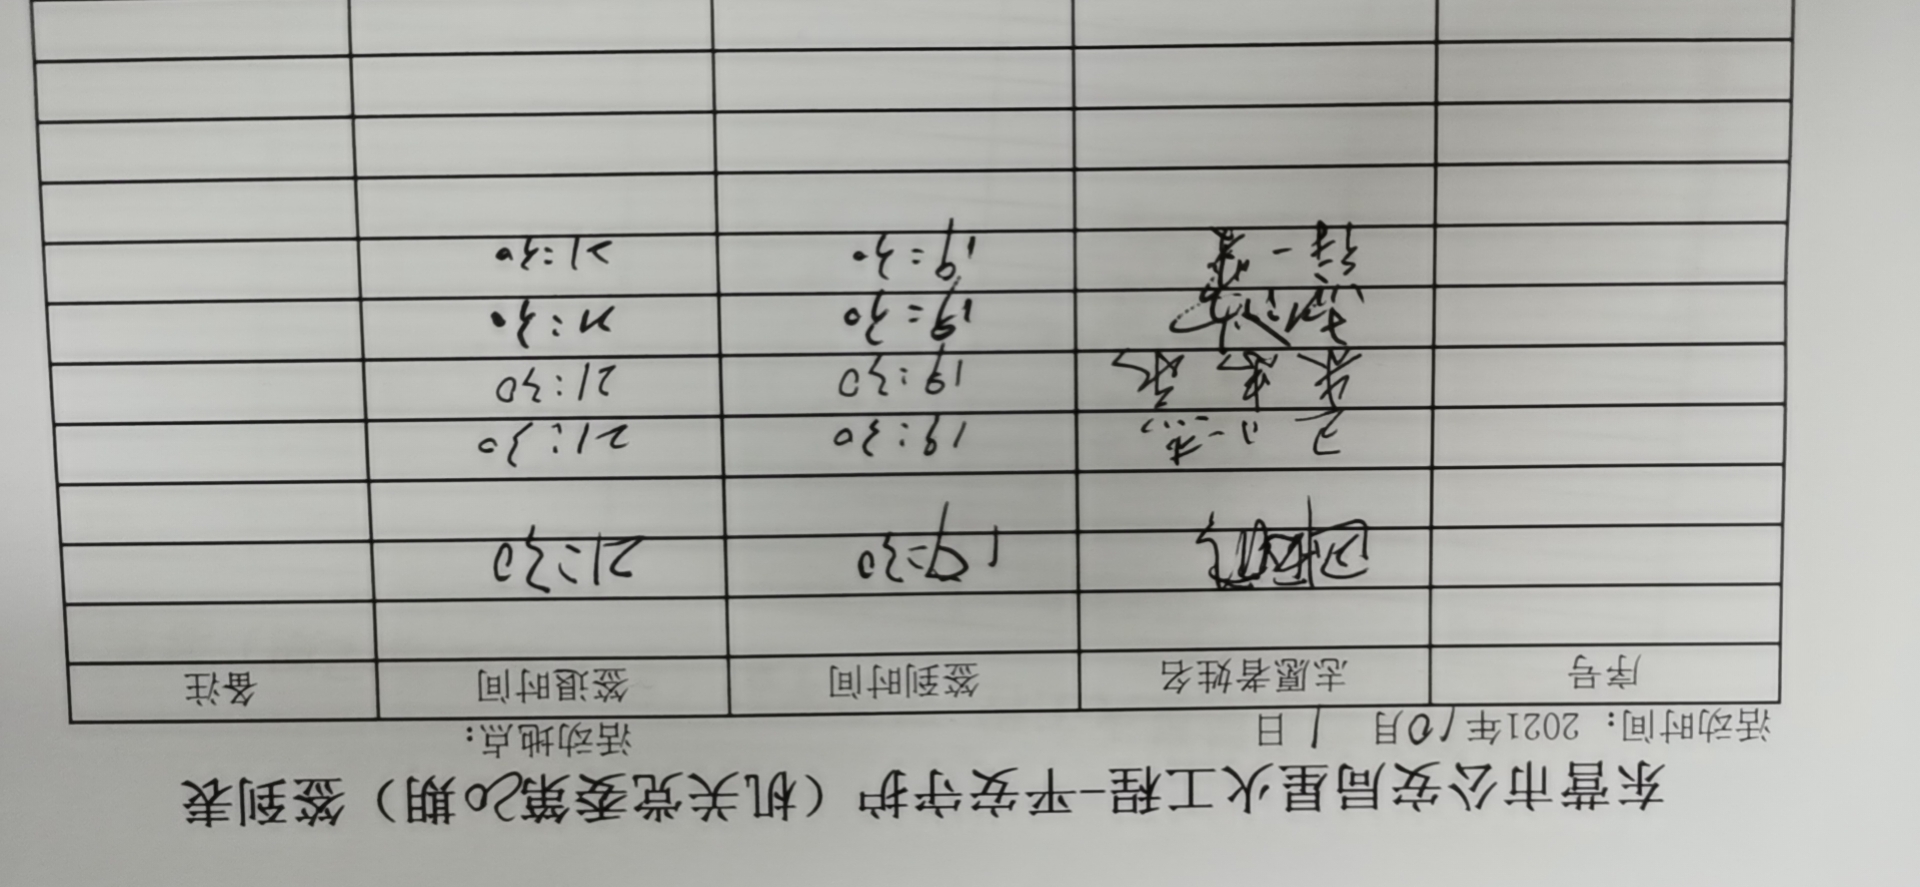 东营市公安局星火工程-平安守护（机关党委第20期）签到表
活动时间：2021年10月1日 活动地点：
序号 志愿者姓名 签到时间 签退时间 备注
19:30 21:30
19:30 21:30
19:30 21:30
19:30 21:30
19:30 21:30